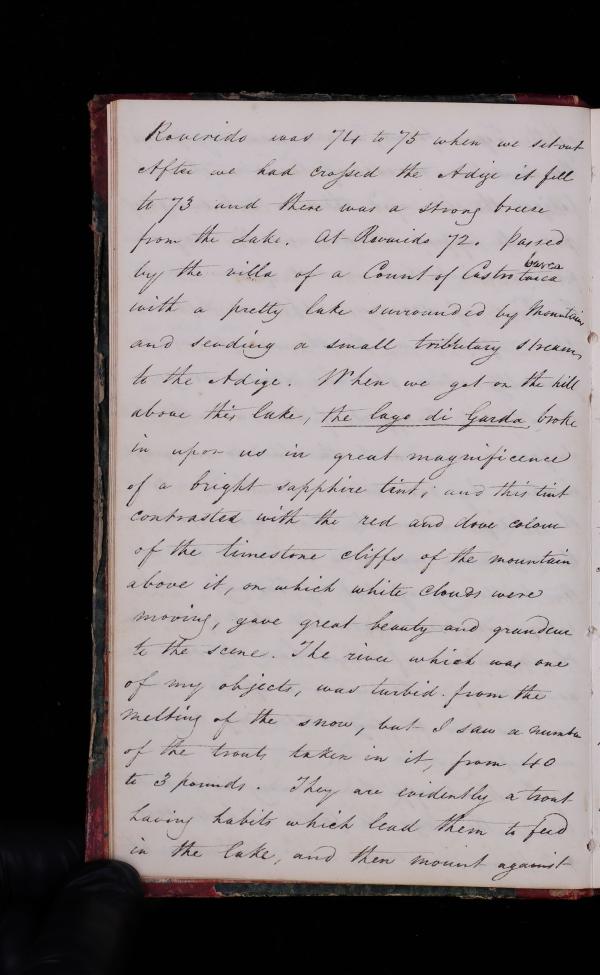 Roverido was 74 to 75 when we set out
After we had crossed the Adige it fell
to 73 and there was a strong breeze
from the Lake. At Roverido 72. Passed
by the villa of a Count of Castro barca
with a pretty lake surrounded by Mountains
and sending a small tributary stream
to the Adige. When we got on the hill
above this lake, the lago di Garda broke
in upon us in great magnificence
of a bright sapphire tint; and this tint
contrasted with the red and dove colour
of the limestone cliffs of the mountain
above it, on which white clouds were
moving, gave great beauty and grandeur
to the scene. The river which was one
of my objects, was turbid from the
melting of the snow, but I saw a number
of the trouts taken in it, from 40
to 3 pounds. They are evidently a trout
having habits which lead them to feed
in the lake, and then mount against